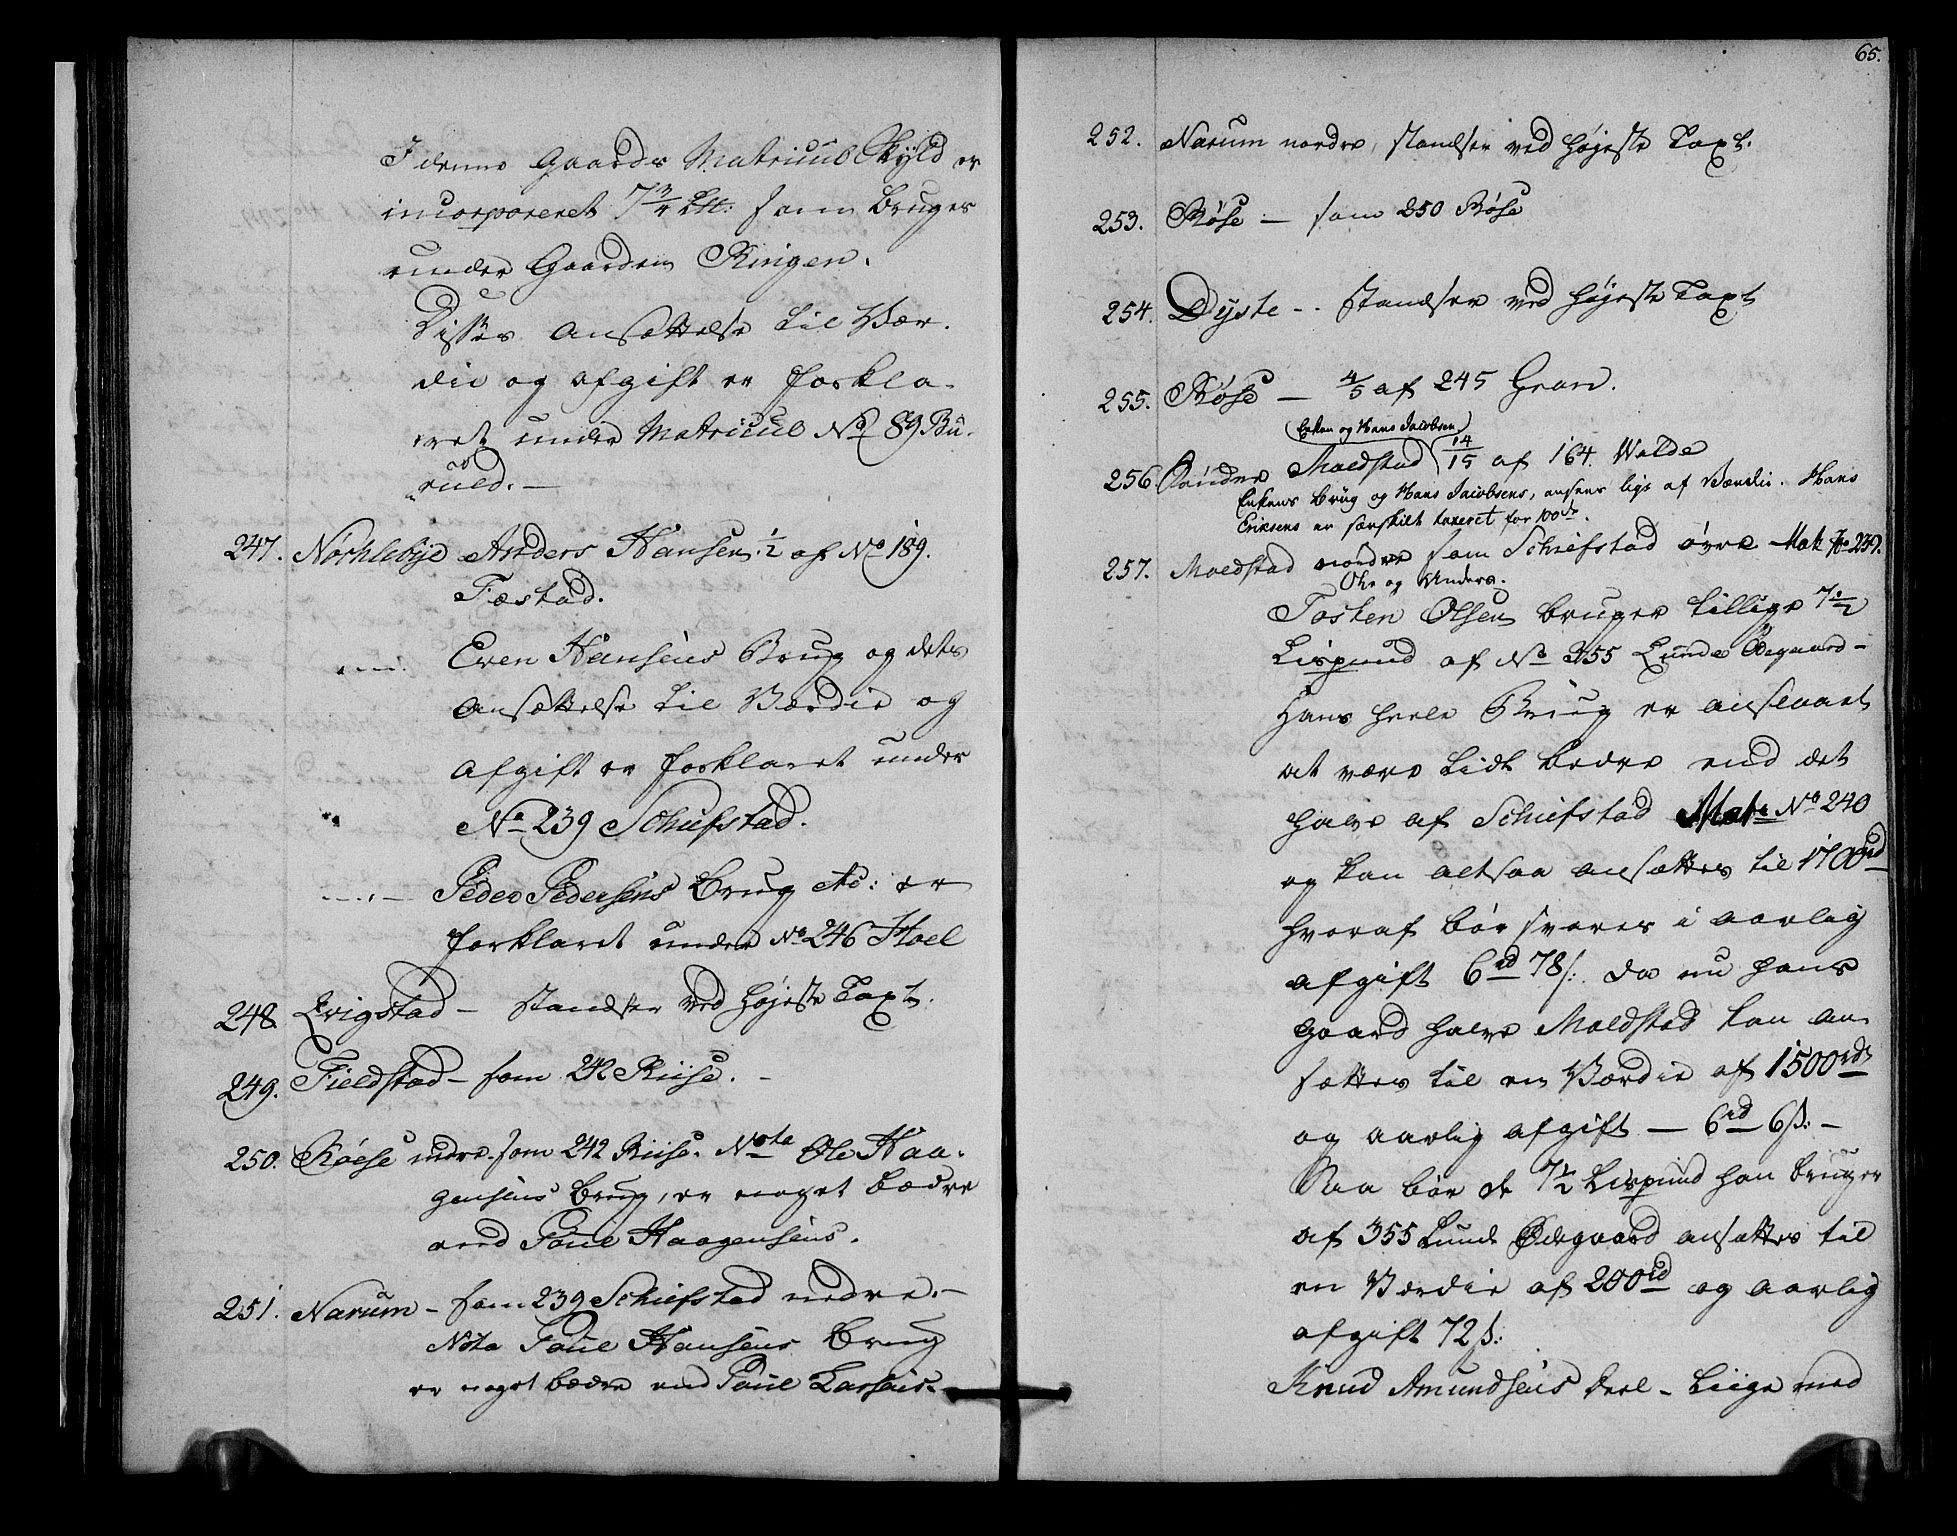 I denne Gaards Matricul Skyld er
incorporeret 7 3/4 L℔: som bruges
under Gaarden Ringen.
Disses Ansættelse til Vær-
die og afgift er forkla-
ret under Matricul No 89 Bu-
ruld. —
247. Nørhlebye Anders Hansen 1/2 af No 189.
Fæstad.
Even Hansens Brug og dets
Ansættelse til Værdie og
Afgift er forklaret under
No 239 Schiefstad.
Peder Pedersens Brug etc: er
forklaret under No 246 Hoel
248. Evigstad — standser ved højeste Taxt.
249. Fieldstad — som 242 Riise. —
250. Røese nedre som 242 Riise. Nota Ole Haa-
gensens Brug, er noget bædre
end Poul Haagensens.
251. Narum — som 239 Schiefstad nedre. —
Nota Poul Hansens Brug
er noget bædre end Poul Larsens.
65.
252. Narum nordre, standser ved højeste Taxt.
253. Røse — som 250 Røse
254. Dyste -- standser ved højeste Taxt
255. Røse — 4/5 af 245 Gran.
(Enken og Hans Jacobsen)
256 Søndre Moldstad 14/15 af 164. Wolde
Enkens Brug og Hans Jacobsens, ansees lige af Værdie. Hans
Eriksens er særskilt taxeret for 100 rd.
257. Moldstad nordre som Schiefstad øvre Mat No 239.
Ole og Anders.
Tosten Olsen bruger tillige 7 1/2
Lispund af No 355 Lunde Ødegaard —
Hans heele Brug er anseet
at være lidt bedre end det
halve af Schiefstad Mat: No 240
og kan altsaa ansættes til 1700 rd
hvoraf bør svares i aarlig
afgift 6 rd 78 s: da nu hans
gaard halve Moldstad kan an-
sættes til en Værdie af 1500 rd
og aarlig afgift — 6 rd 6 s: —
Saa bør de 7 1/2 Lispund han bruger
af 355 Lunde Ødegaard ansættes til
en Værdie af 200 rd og aarlig
afgift 72 s:
Knud Amundsens deel — liige med